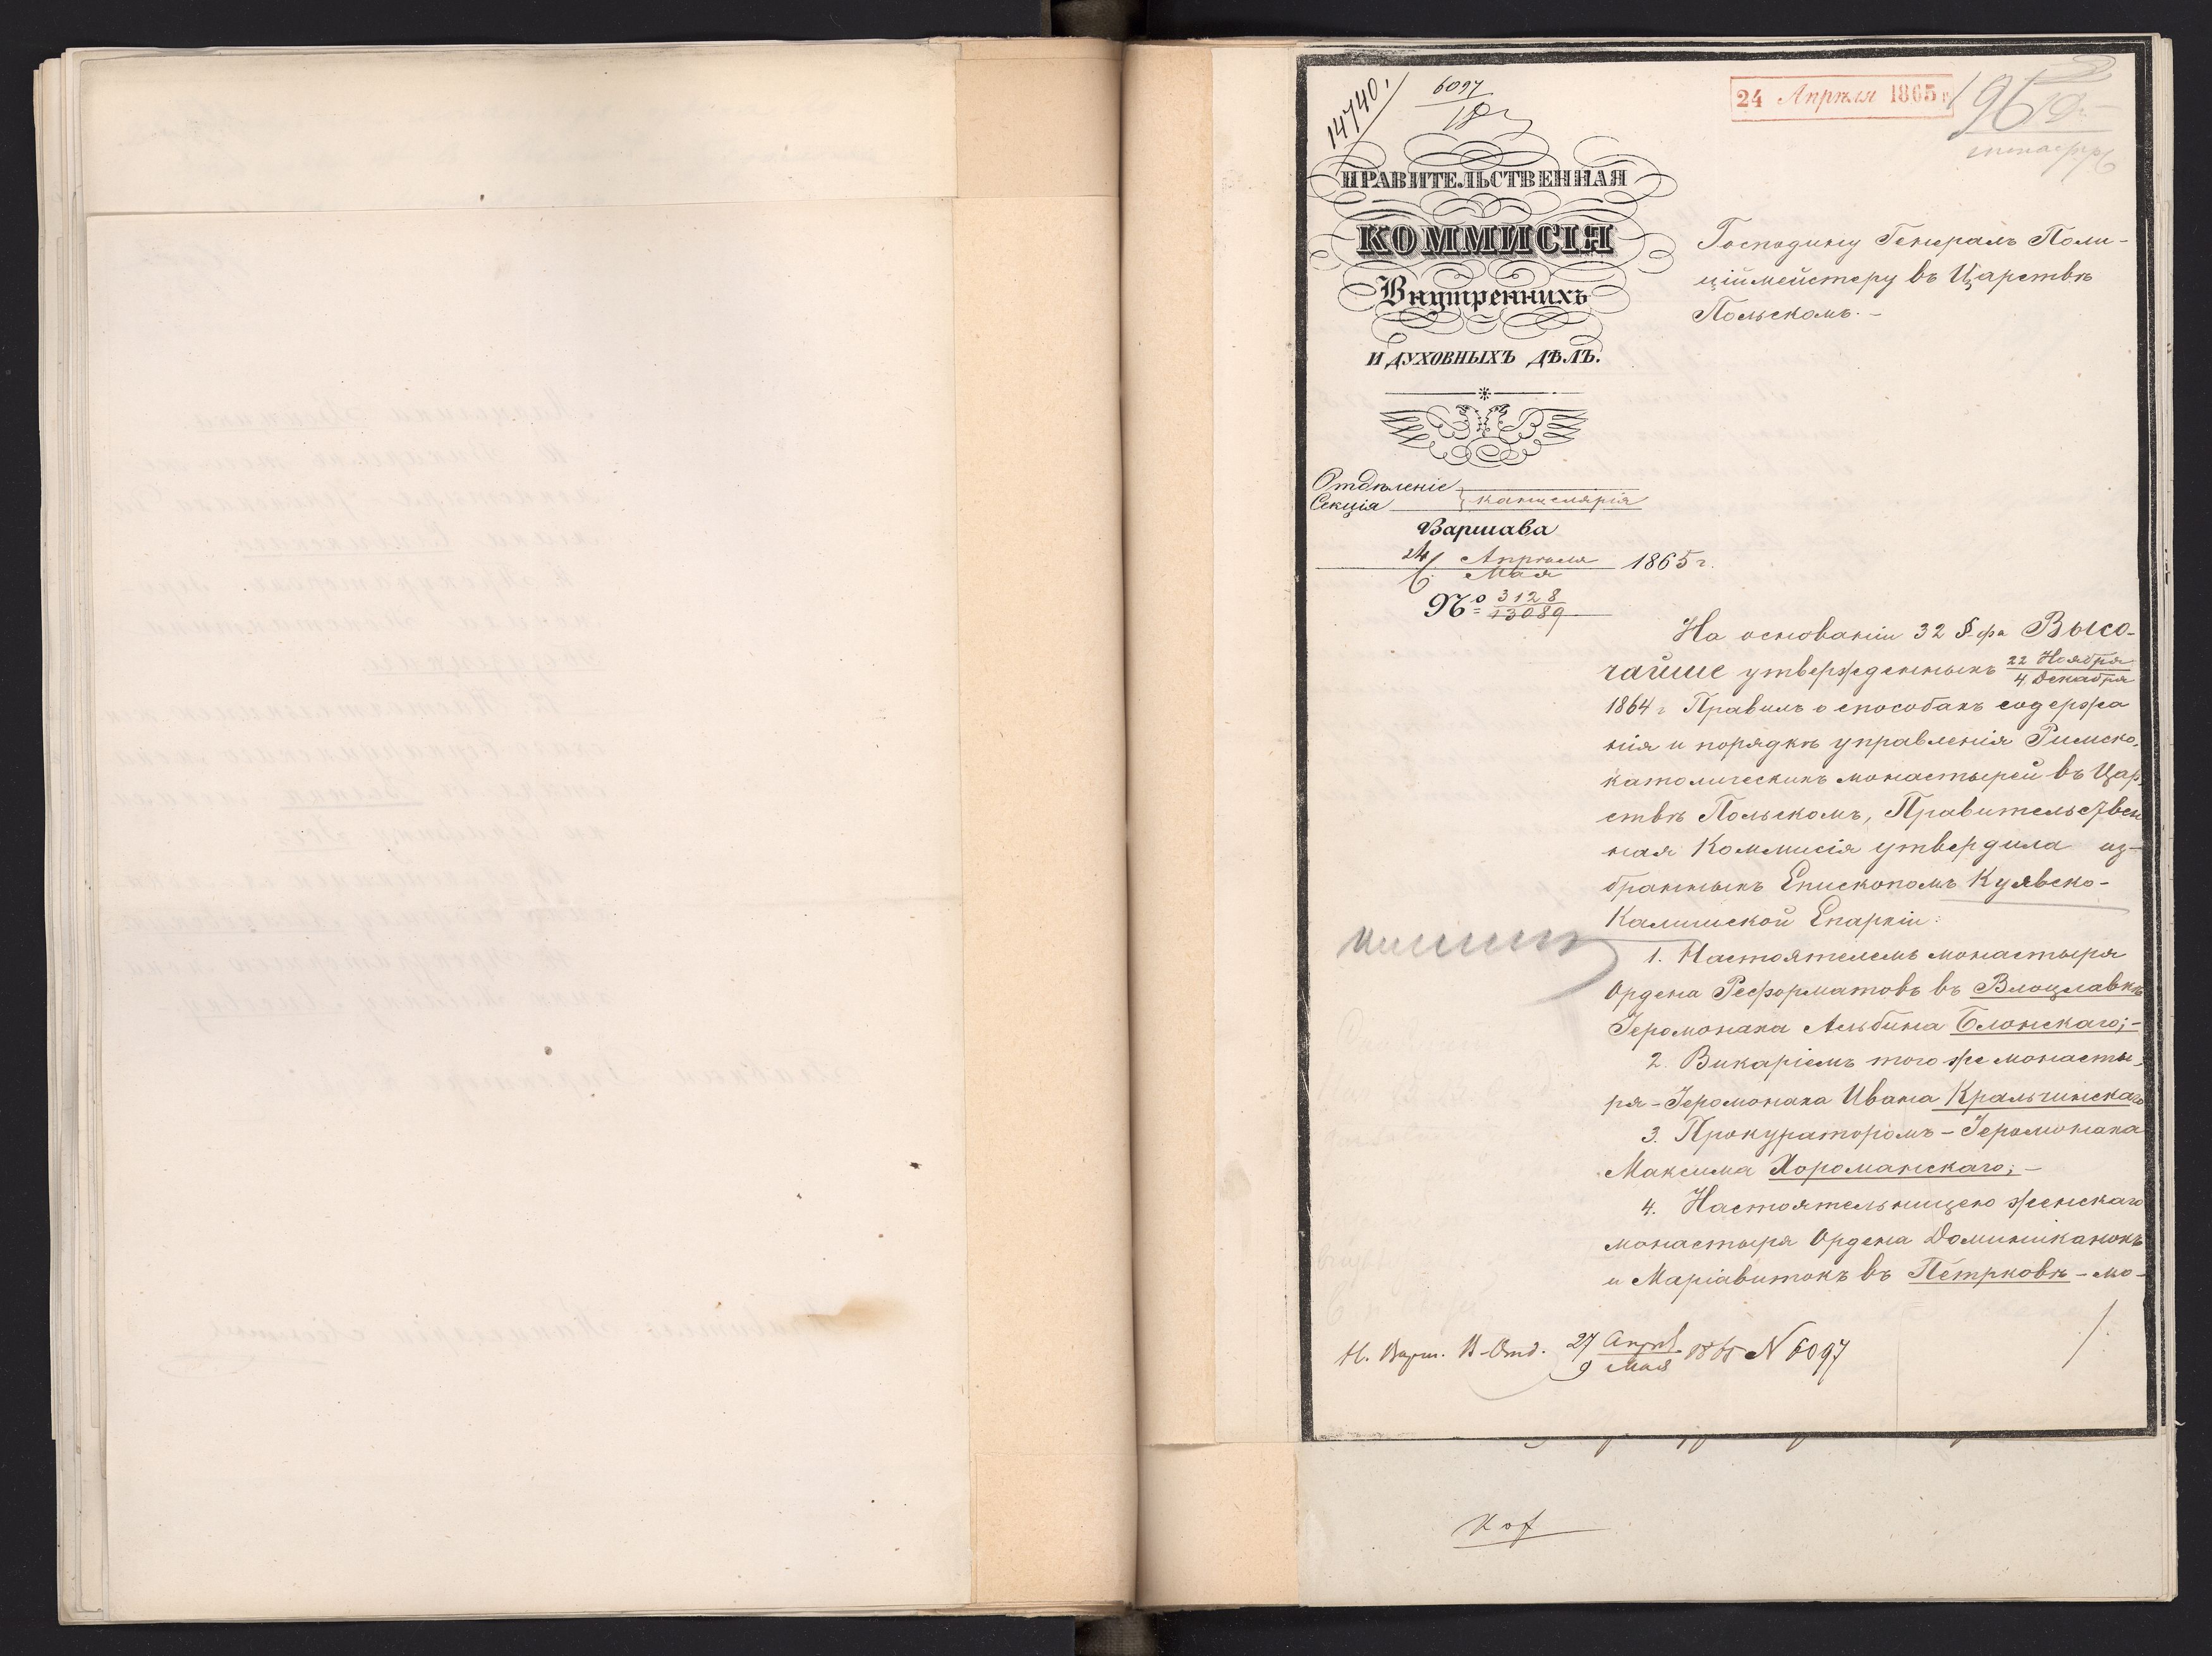 14740.
6097
24 Апрѣля 1865 г.
196
ПРАВИТЕЛЬСТВЕННАЯ
КОММИСІЯ
Внутреннихъ
И ДУХОВНЫХЪ ДѢЛЪ.
Отдѣленіе
Секція
канцелярія
Варшава
24/6 Апрѣля/Мая 1865 г.
№ 3128/13089
Господину Генералъ Поли-
ціймейстеру въ Царствѣ
Польскомъ.-
На основаніи 32 §-фа Высо-
чайше утвержденныхъ 22 Ноября/4 Декабря
1864 г Правилъ о способахъ содержа
нія и порядкѣ управленія Римско-
католическихъ монастырей въ Цар
ствѣ Польскомъ, Правительствен
ная Коммисія утвердила из-
бранныхъ Епископомъ Куявско-
Калишской Епархіи:
1. Настоятелемъ монастыря
Ордена Реформатовъ въ Влоцлавкѣ
Іеромонаха Альбина Блонскаго;-
2. Викаріемъ того же монасты-
ря-Іеромонаха Ивана Кральчинскаго
3. Прокураторомъ-Іеромонаха
Максима Хороманскаго;-
4. Настоятельницею женскаго
монастыря Ордена Доминиканокъ
и Маріавитокъ въ Петрковѣ-мо-
27 Апр/9 Мая 1865 N 6097